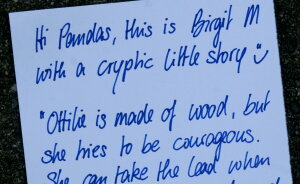 Hi Pandas, this is Birgit M
with a cryptic little story
"Ottilie is made of wood, but
she tries to be courageous.
She can take the lead when